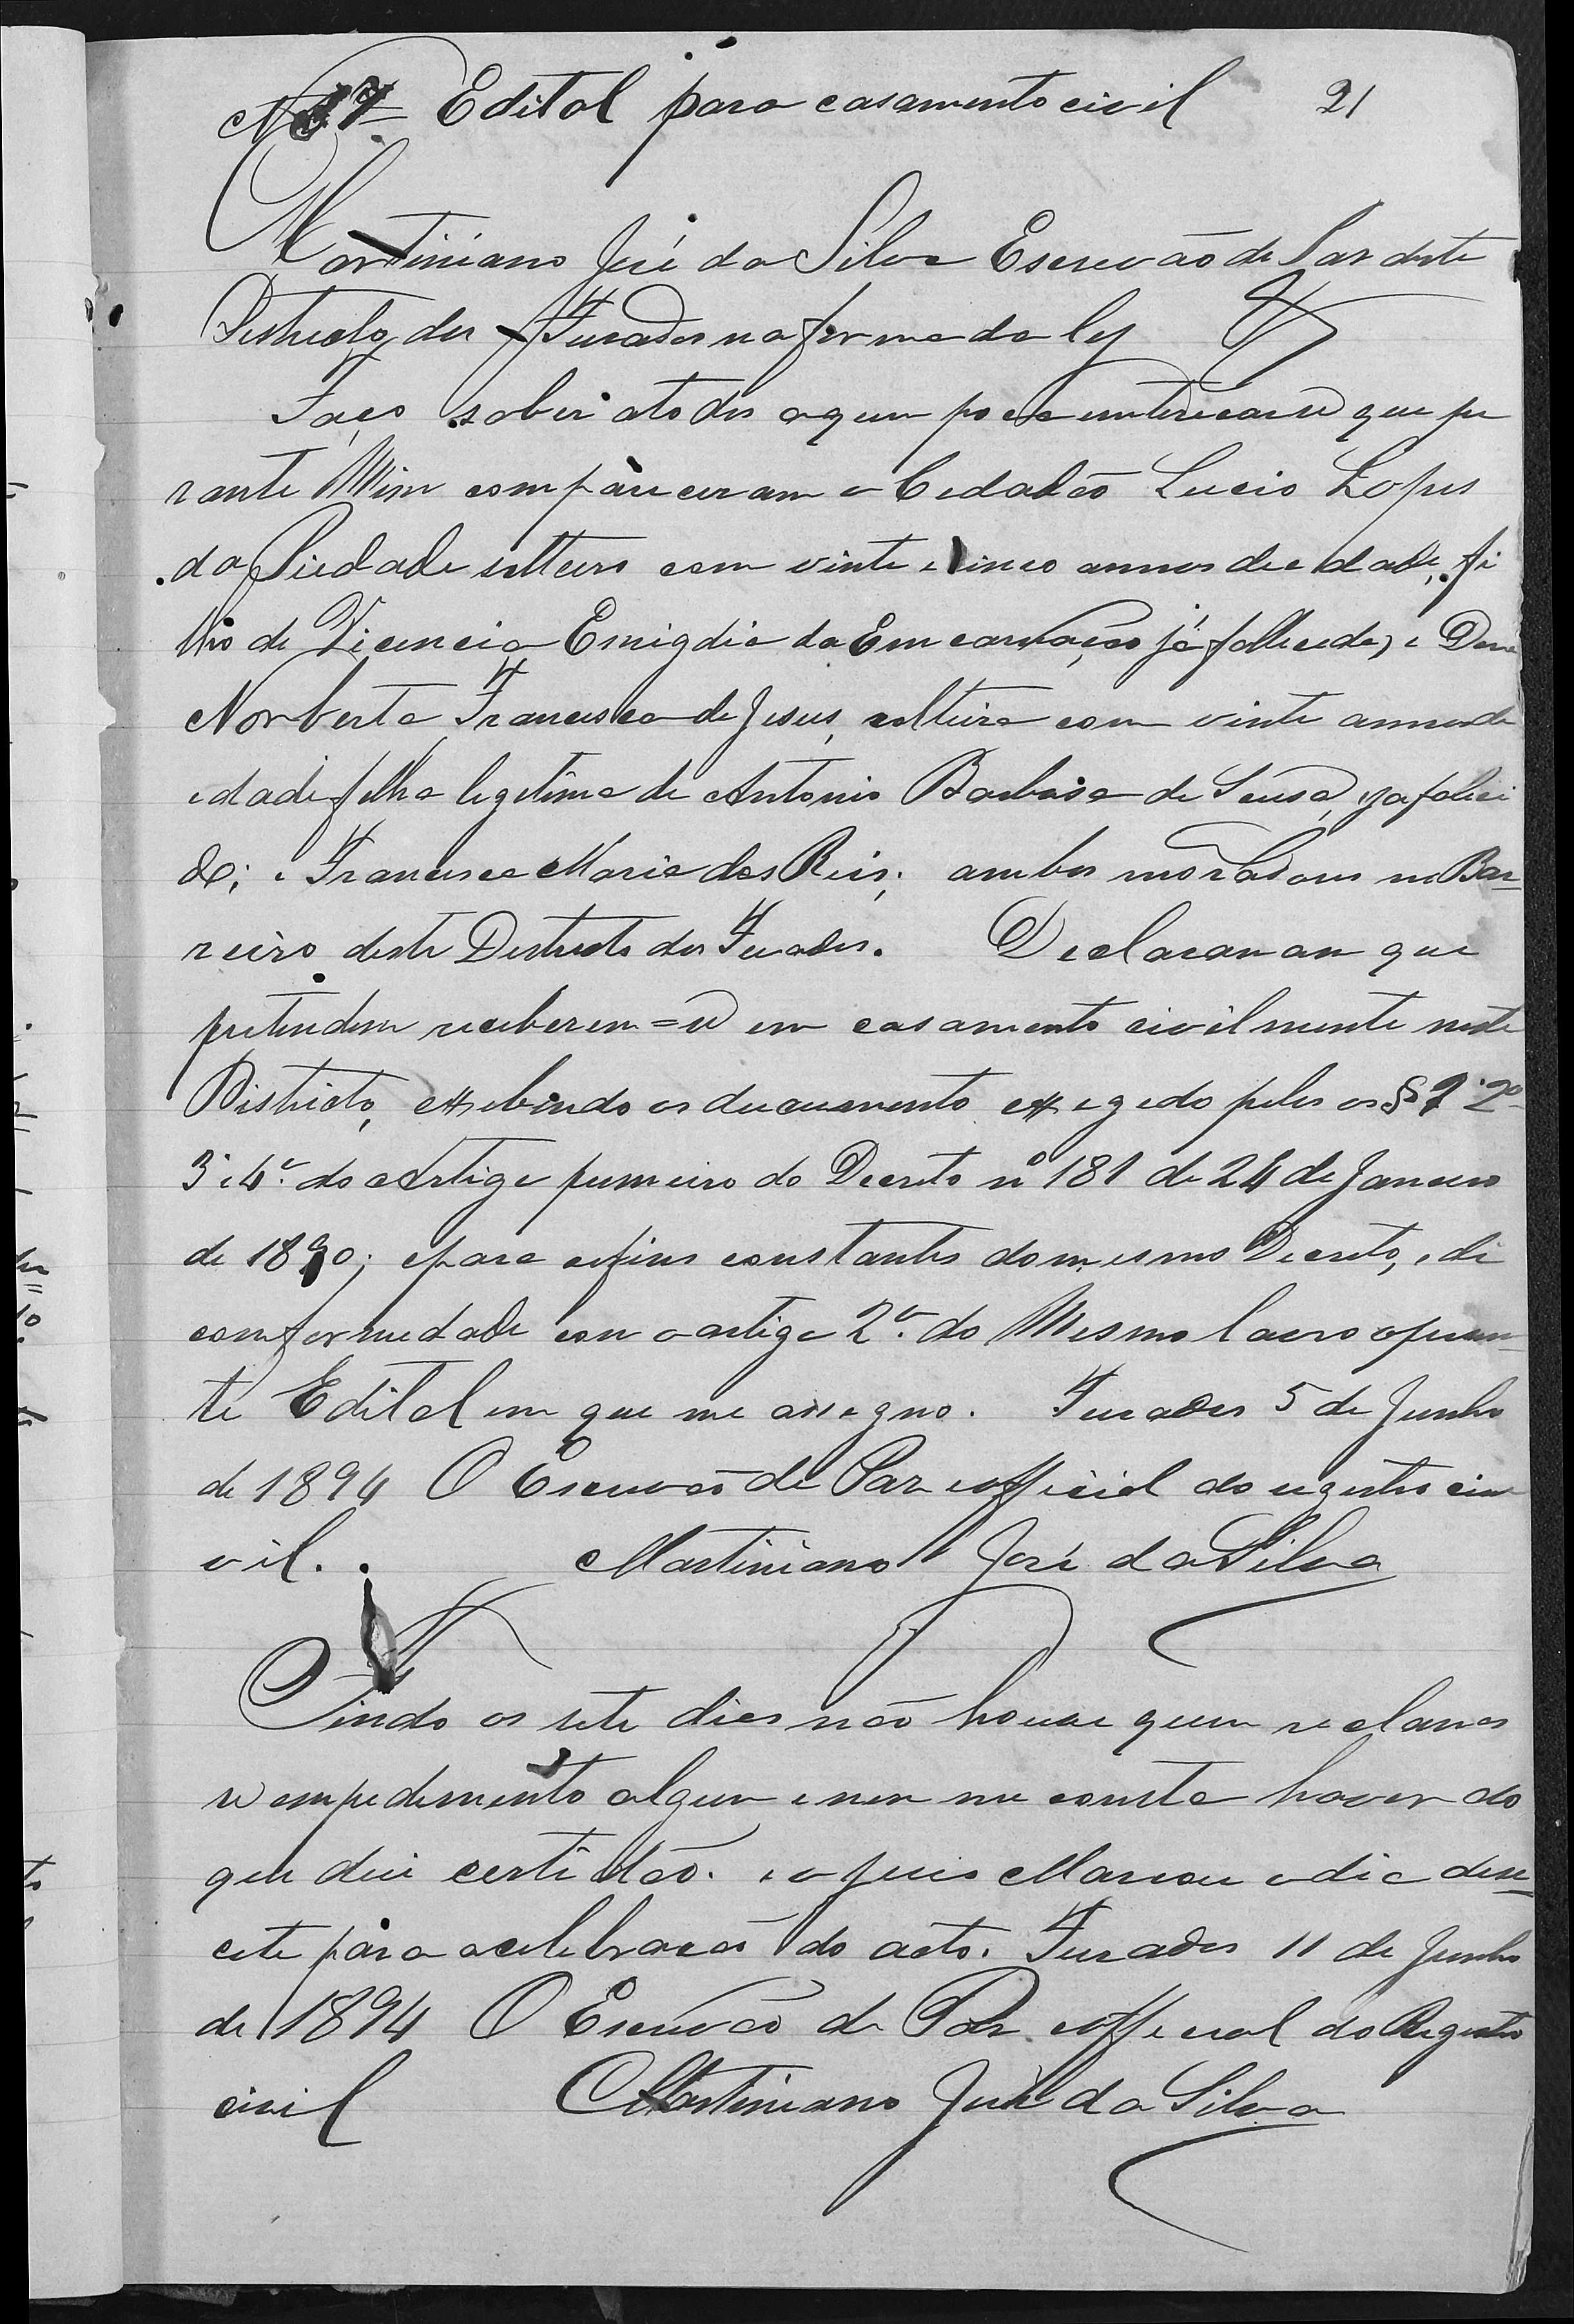 Nº 17 Edital para casamento civil 21
Martiniano José da Silva Escrevão de Paz deste
Destricto dos Furados na forma da ley
Faço saber a todos a quem poça enterecarse que pe
rante Mim compareceram o Cedadão Lucio Lopes
da Piedade solteiro com vinte e cinco annos de edade, fi
lho de Vicencia Emigdia da Emcarnação já fallecida, e Dona
Norberta Francisca de Jesus, solteira com vinte annos de
edade filha legitima de Antonio Barbosa de Sousa, ja faleci
do; e Francisca Maria dos Reis; ambos moradores no Bar=
reiro deste Destricto dos Furados. Declararam que
pretendem receberem=se em casamento civilmente neste
Districto, exsebindo os ducumento exsegedo pelos os § 1º 2º
3º e 4º do Artigo premeiro do Decreto nº 181 de 24 de Janeiro
de 1890; e para os fins constantes do mesmo Decreto, e de
comformedade com o artigo 2º do Mesmo lavro o presen=
te Edital em que me assegno. Furados 5 de Junho
de 1894 O Escrevão de Paz e official do registro ci
vil. Martiniano José da Silva
Findo os sete dias não houve quem reclamas
se empedimento algum e nem me consta haver do
que dei certidão. e o juis Marcou o dia dese=
cete para a celebracão do acto. Furados 11 de Junho
de 1894 O Escrevão de Paz e offecial do Registro
civil Martiniano José da Silva